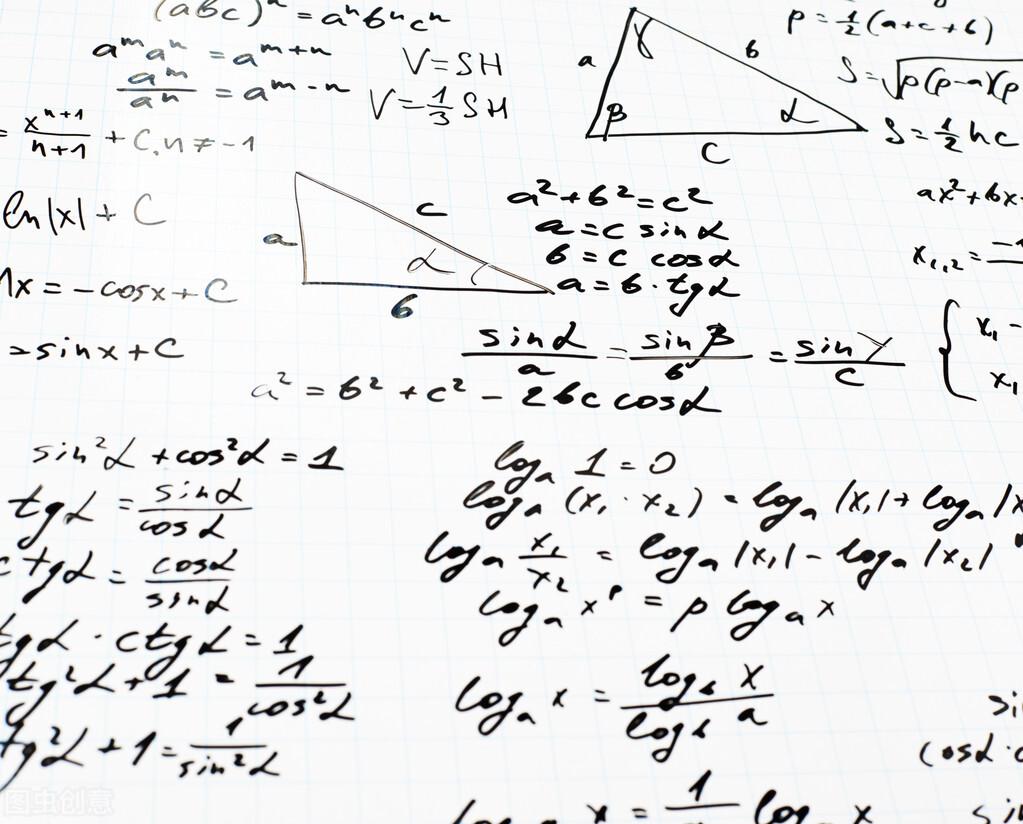 (abc)ⁿ = aⁿbⁿcⁿ
aᵐaⁿ = aᵐ⁺ⁿ
aᵐ/aⁿ = aᵐ⁻ⁿ
= xⁿ⁺¹/(n+1) + C, n ≠ -1
ln|x| + C
x = -cosx + C
= sinx + C
V = SH
V = 1/3 SH
γ
a
b
β
α
C
p = 1/2 (a+c+b)
S = √p(p-a)(p
S = 1/2 hc
a
c
α
b
a² + b² = c²
a = c sinα
b = c cosα
a = b · tgα
ax² + bx
x₁,₂ =
x₁ -
x₁
sinα/a = sinβ/b = sinγ/C
a² = b² + c² - 2bc cosα
sin²α + cos²α = 1
tgα = sinα/cosα
ctgα = cosα/sinα
tgα · ctgα = 1
tg²α + 1 = 1/cos²α
tg²α + 1 = 1/sin²α
logₐ 1 = 0
logₐ (x₁ · x₂) = logₐ |x₁| + logₐ |x
logₐ x₁/x₂ = logₐ |x₁| - logₐ |x₂|
logₐ xᵖ = p logₐ x
logₐ x = log_b x/log_b a
x = 1/ log x
sin
cosα ·
sin
图虫创意